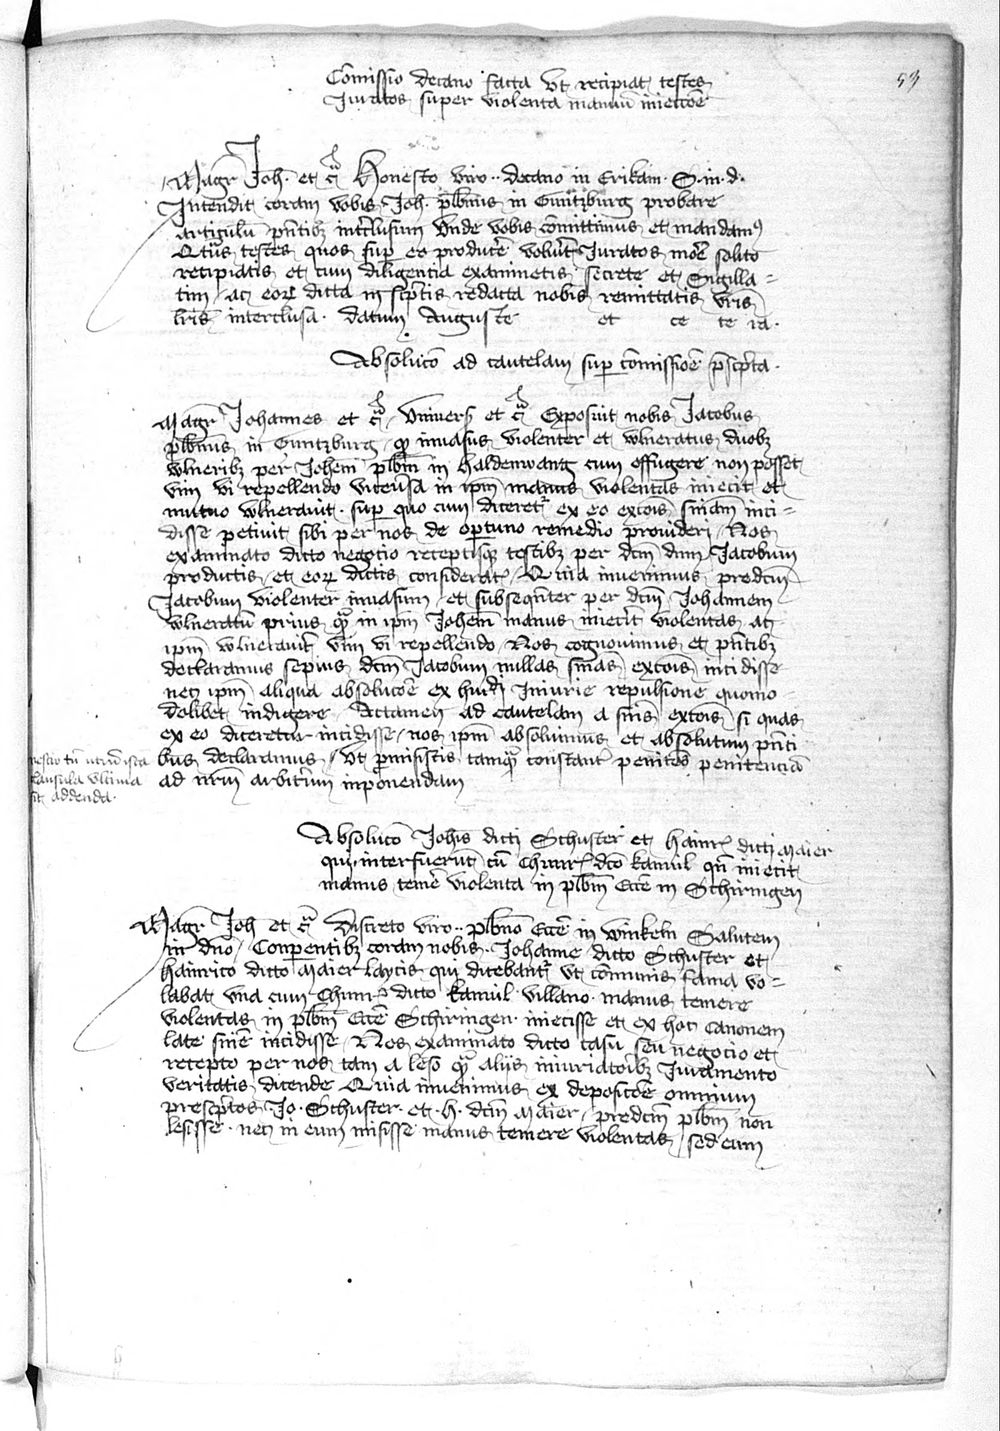 53
Com̄issio decano facta vt recipiat testes
Iuratos super violenta manuū inieccōe
Magr̄ Joh. et c̄ Honesto viro .. decano in Erikam. S. in. d.
Intendit coram vobis Joh. plb̄nus in Guntzburg probare
articulū pn̄tibꝫ int̄clusum vnde vobis cōmittimus et mandamꝰ
Qt̄us testes quos sup̲ eo produc̄e volūit Iuratos mōe solito
recipiatis et cum diligentia examinetis secrete et Sigilla-
tim ac eoꝝ dicta in sc̄ptis redacta nobis remittatis vr̄is
lr̄is interclusa. datum Auguste et ce te ra.
Absolucō ad cautelam sup̲ cōmissiōe p̄sc̄pta.
Magr̄ Johannes et c̄ vnivers̄ et c̄ Exposuit nobis Jacobus
plb̄nus in Guntzburg qͥ inuasus violenter et wlneratus duobꝫ
wlneribꝫ per Johēm plb̄m in Haldenwang cum effugere non posset
vim vi repellendo viceuersa in ip̄m manus violentas iniecit et
mutuo wlnerauit. sup̲ quo cum diceret̄ ex eo excōis sn̄iam inci-
disse petiuit sibi per nos de oportuno remedio prouideri Nos
examinato dicto negocio receptisqꝫ testibꝫ per dc̄m dnm̄ Jacobum
productis et eoꝝ dictis considerat̄ Quia inuenimus predc̄m
Jacobum violenter inuasum et subseqn̄ter per dc̄m Johannem
wlneratū prius qͣꝫ in ip̄m Johēm manus iniec̄it violentas ac
ip̄m wlnerauit̄ vim vi repellendo Nos cognouimus et pn̄tibꝫ
declaramus sepius dc̄m Jacobum nullas sn̄ias excōis incidisse
nec ip̄m aliqua absolucōe ex huiꝰi Iniurie repulsione quomo-
dolibet indigere Attamen ad cautelam a sn̄iis excōis si quas
ex eo diceretur incidisse nos ip̄m absoluimus et absolutum pn̄ti
bus declaramus vt p̲misistis tamqͣꝫ constant̄ penitēs penitenciā
ad nr̄m arbitrium inponendam
nescio tn̄ vtrū ista
clausula vltima
sit addenda.
Absolucō Joh̄is dicti Schuster et Hainr̄ dicti Maier
qui interfuerūt cū Chunr̄ dc̄o kamul qn̄ iniecit
manus tem̄e violenta in plb̄m Ecc̄e in Schiringen
Magr̄ Joh et c̄ Discreto viro .. plb̄no Ecc̄e in winkeln̄ Salutem
in dn̄o Conp̲entibꝫ coram nobis. Johanne dicto Schuster et
Hainrico dicto Maier laycis qui dicebant̄ vt cōmunis fama vo-
labat vna cum Chunr̄ dicto kamul villano manus temere
violentas in plb̄m Ecc̄e Schiringen iniecisse et ex hoc canonem
late sn̄ie incidisse Nos examinato dicto casu seu negocio et
recepto per nos tam a leso qͣꝫ alijs iniuriatoribꝫ Iuramento
veritatis dicende Quia inuenimus ex deposicōe omnium
presc̄ptos Jo. Schuster. et. H. dc̄m Maier predc̄m plb̄m non
lesisse. nec in eum misisse manus temere violentas sed eum